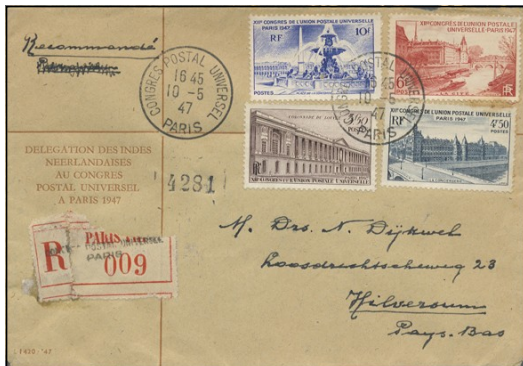 Recommandé
CONGRES POSTAL UNIVERSEL
16 45
10 - 5
47
PARIS
XIIE CONGRES DE L'UNION POSTALE UNIVERSELLE
PARIS 1947
RF
10F
POSTES
XIIE CONGRES DE L'UNION POSTALE UNIVERSELLE-PARIS 1947
6F
RF
POSTES
CONGRES POSTAL UNIVERSEL
16 45
10 - 5
47
PARIS
3F50
RF
XIIE CONGRES DE L'UNION POSTALE UNIVERSELLE
XIIE CONGRES DE L'UNION POSTALE UNIVERSELLE
PARIS 1947
RF
4F50
POSTES
LA CONCIERGERIE
DELEGATION DES INDES
NEERLANDAISES
AU CONGRES
POSTAL UNIVERSEL
A PARIS 1947
4281
R
PARIS
POSTAL UNIVERSEL
PARIS
009
M. Drs. N. Dijkweh
Loosdrechtscheweg 23
Hilversum
Pays-Bas